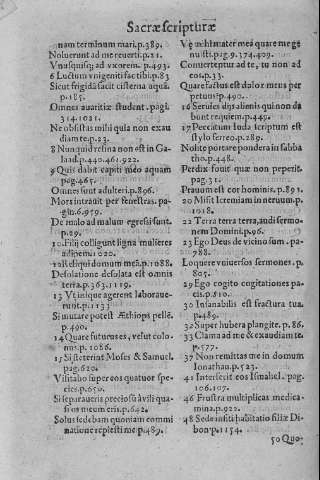 Sacræscripturæ
nam terminum mari.p.389.
Noluerunt ad me reuerti.p.21.
Vnusquisq; ad vxorem. p.493.
6 Luctum vnigeniti fac tibi.p.83
Sicut frigidā facit cisterna aquā.
p.185.
Omnes auaritiæ student. pagi.
314.1021.
Ne obsistas mihi quia non exau
diam te.p.23.
8 Nunquid resina non est in Ga-
laad.p.440.461.922.
9 Quis dabit capiti meo aquam
pag.467.
Omnes sunt adulteri.p.896.
Mors intrauit per fenestras. pa-
gin.6.959.
De malo ad malum egressi sunt.
p.29.
10. Filij colligunt ligna mulieres
adipem.1020.
12 Reliqui domum meā.p.1088.
Desolatione desolata est omnis
terra.p.363.1119.
13 Vtinique agerent laboraue-
runt.p.1133
Si mutare potest Æthiops pellē.
p.490.
14 Quare futurus es, velut colo-
nus.p.1086.
15 Si steterint Moses & Samuel.
pag.620.
Visitabo super eos quatuor spe-
cies.p.650.
Si separaueris preciosū à vili qua-
si os meum eris.p.642.
Solus sedebam quoniam commi
natione replesti me p.489.
Væ mihi mater mea quare me ge
nuisti.pag.9.374.409.
Conuertentur ad te, tu non ad
eos.p.33.
Quare factus est dolor meus per
petuus?p.490.
16 Seruies dijs alienis qui non da
bunt requiem.p.449.
17 Peccatum Iuda scriptum est
stylo ferreo.p.289.
Nolite portare pondera in sabba
tho.p.448.
Perdix fouit quæ non peperit.
pag.31.
Prauum est cor hominis.p.893.
20 Misit Ieremiam in neruum.p.
1018.
22 Terra terra terra, audi sermo-
nem Domini.p.96.
23 Ego Deus de vicino sum. pa-
788.
Loquere vniuersos sermones. p.
805.
29 Ego cogito cogitationes pa-
cis.p.510.
30 Insanabilis est fractura tua.
p.489.
32 Super hubera plangite.p.86.
33 Clama ad me & exaudiam te.
p.577.
37 Non remittas me in domum
Ionathan.p.523.
41 Interfecit eos Ismahel. pag.
106.107.
46 Frustra multiplicas medica-
mina.p.922.
48 Sede in siti habitatio filiæ Di-
bon.p.1154.
50 Quo-